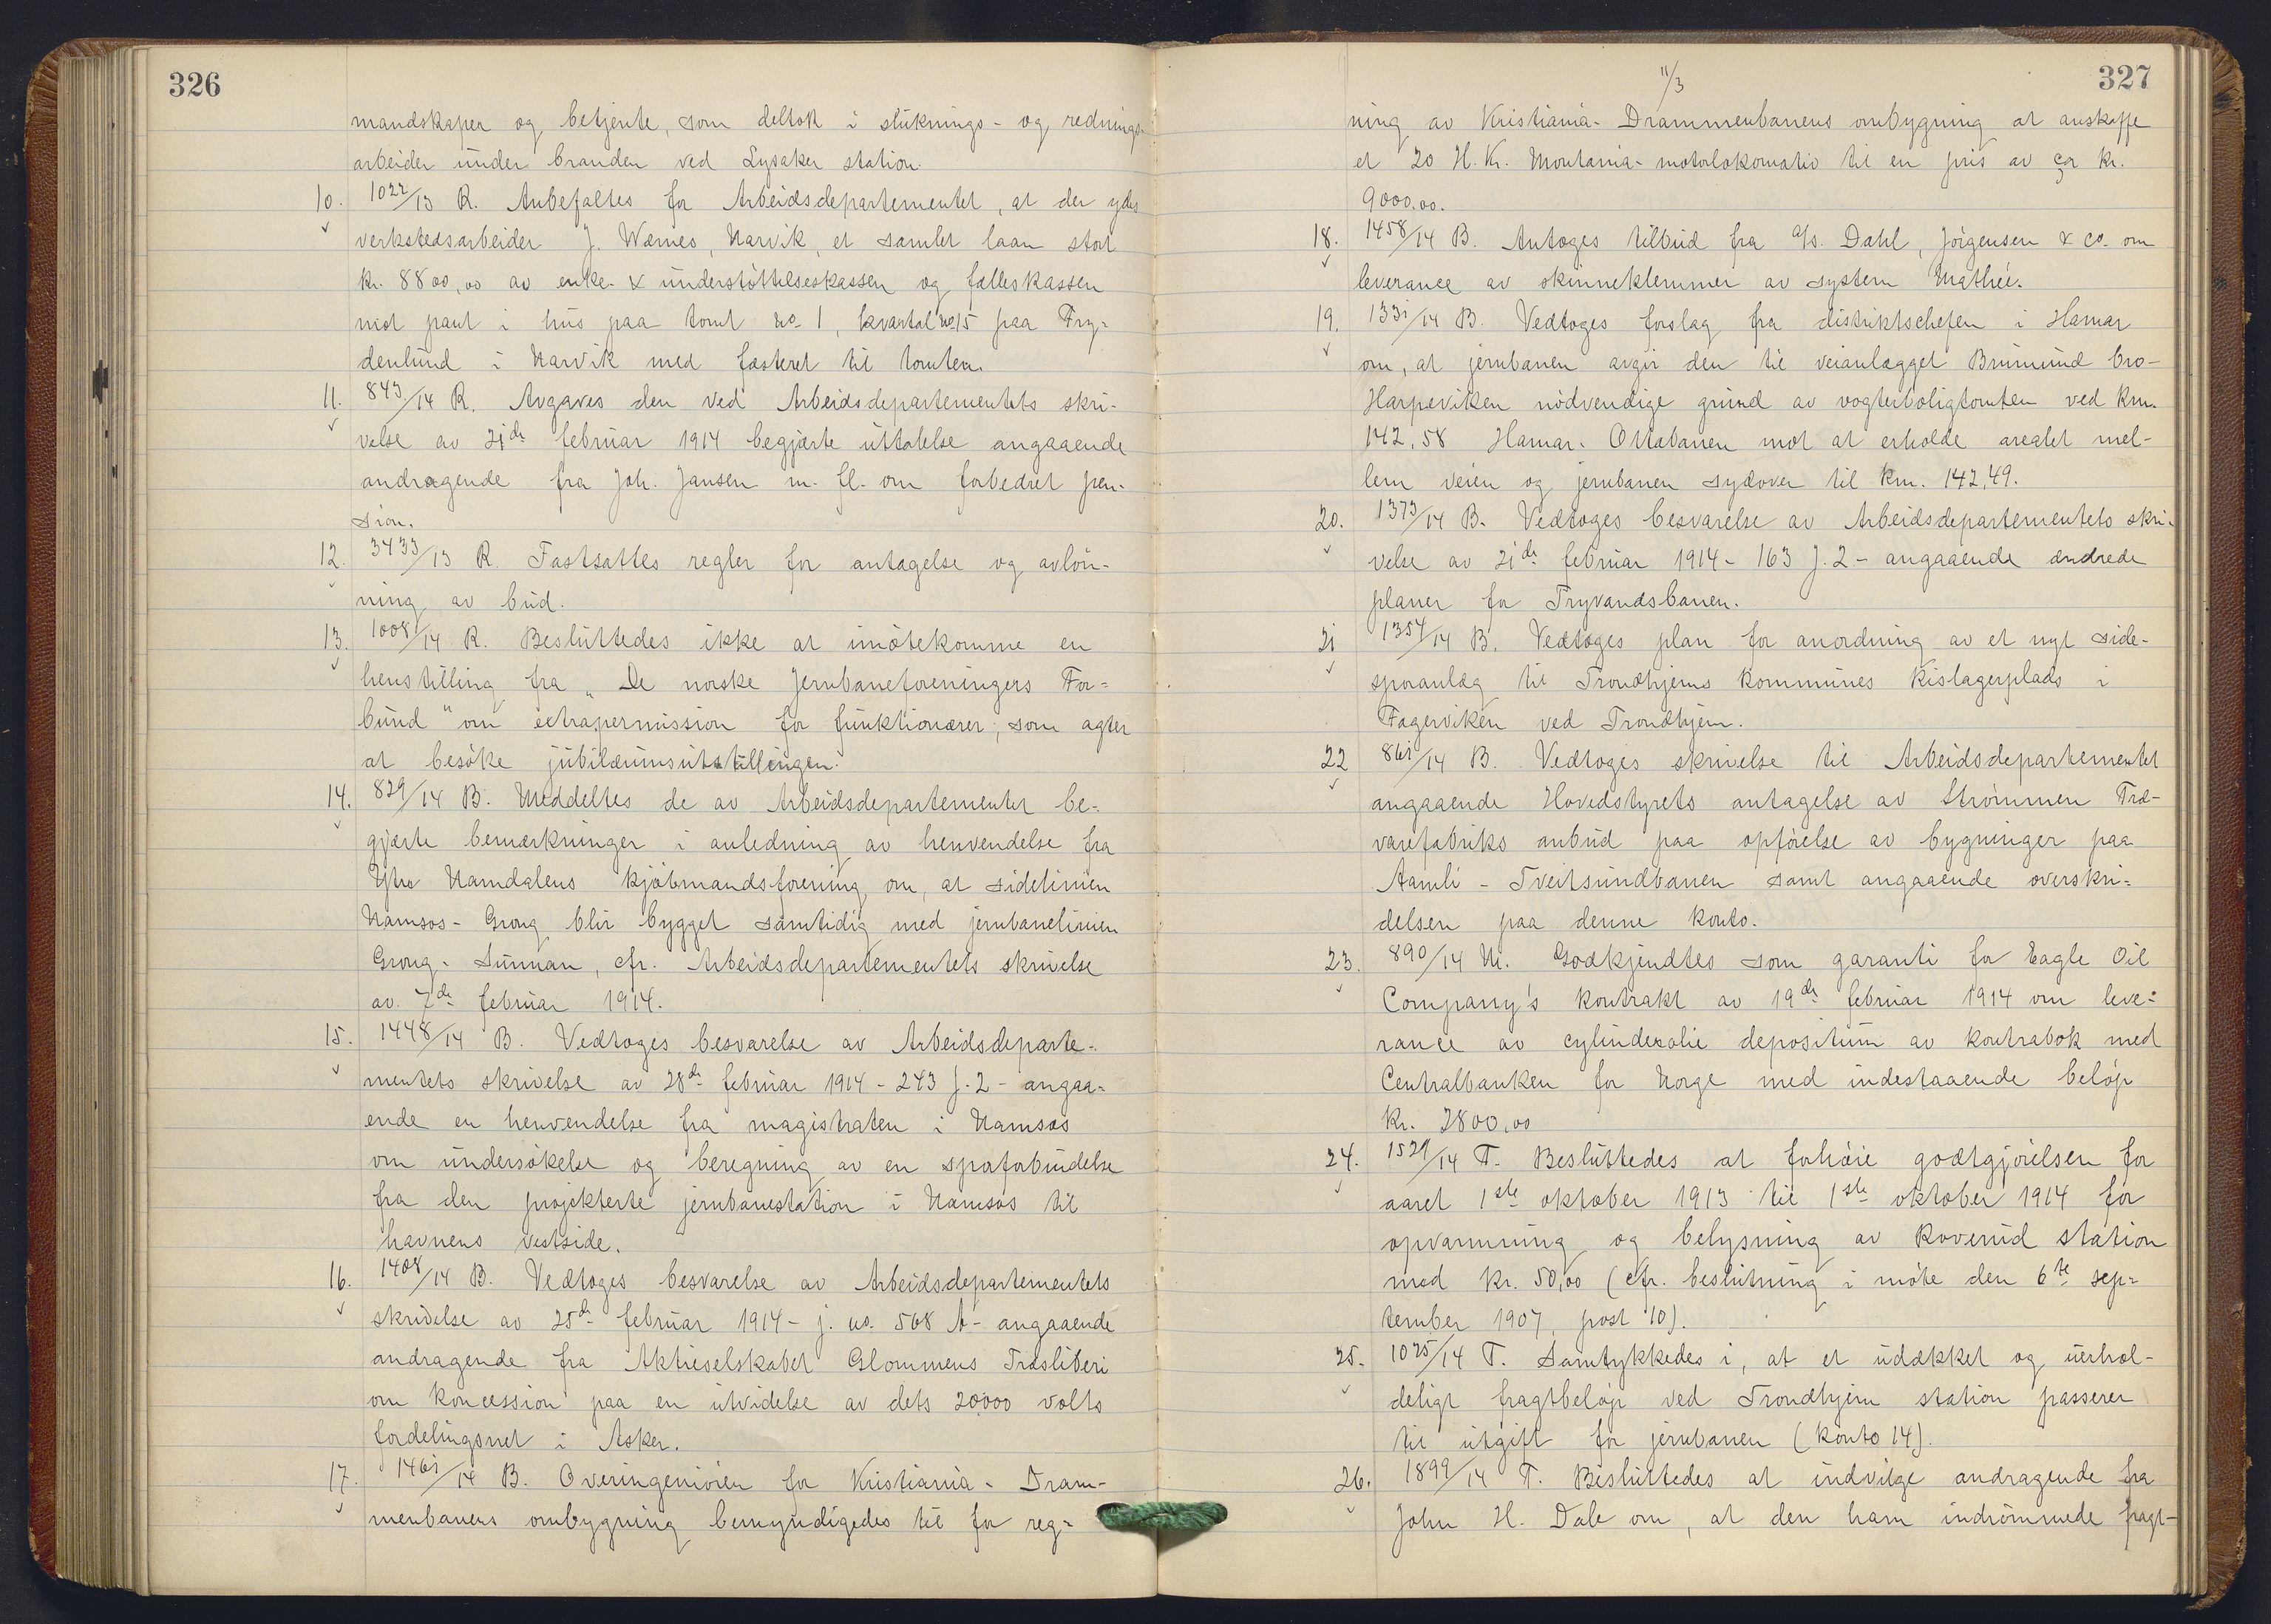 326
mandskaper og betjente, som deltok i sluknings- og rednings-
arbeider under branden ved Lysaker station.
10. 1022/13 R. Anbefaltes for Arbeidsdepartementet, at der ydes
verkstedsarbeider J. Wærnes, Narvik, et samlet laan stort
kr. 8800,00 av enke- & understöttelseskassen og fælleskassen
mot pant i hus paa tomt no. 1, kvartal no 15 paa Fry-
denlund i Narvik med fæsteret til tomten.
11. 843/14 R. Avgaves den ved Arbeidsdepartementets skri-
velse av 21de februar 1914 begjærte uttalelse angaaende
andragende fra Joh. Jansen m. fl. om forbedret pen-
sion.
12. 3433/13 R. Fastsattes regler for antagelse og avløn-
ning av bud.
13. 1008/14 R. Besluttedes ikke at imötekomme en
henstilling fra "De norske Jernbaneforeningers For-
bund" om extrapermission for funktionærer, som agter
at besöke jubilæumsutstillingen.
14. 829/14 B. Meddeltes de av Arbeidsdepartementet be-
gjærte bemærkninger i anledning av henvendelse fra
Ytre Namdalens Kjöbmandsforening om, at sidelinien
Namsos - Grong blir bygget samtidig med jernbanelinien
Grong - Sunnan, cfr. Arbeidsdepartementets skrivelse
av 7de februar 1914.
15. 1448/14 B. Vedtoges besvarelse av Arbeidsdeparte-
mentets skrivelse av 28de februar 1914 - 243 J. 2 - angaa-
ende en henvendelse fra magistraten i Namsos
om undersökelse og beregning av en sporforbindelse
fra den projekterte jernbanestation i Namsos til
havnens vestside.
16. 1408/14 B. Vedtoges besvarelse av Arbeidsdepartementets
skrivelse av 25de februar 1914 - j. no. 568 A - angaaende
andragende fra Aktieselskabet Glommens Træsliberi
om koncession paa en utvidelse av dets 20000 volts
fordelingsnet i Asker.
17. 1461/14 B. Overingeniören for Kristiania - Dram-
menbanens ombygning bemyndigedes til for reg-
11/3
327
ning av Kristiania - Drammenbanens ombygning at anskaffe
et 20 H. Kr. Montania-motorlokomotiv til en pris av ca kr.
9000,00.
18. 1458/14 B. Antoges tilbud fra A/s. Dahl, Jörgensen & co. om
leverance av skinneklemmer av system Mathée.
19. 1331/14 B. Vedtoges forslag fra distriktschefen i Hamar
om, at jernbanen avgir den til veianlægget Brumund bro -
Harpeviken nödvendige grund av vogterboligtomten ved km.
142,58 Hamar - Ottabanen mot at erholde arealet mel-
lem veien og jernbanen sydover til km. 142,49.
20. 1373/14 B. Vedtoges besvarelse av Arbeidsdepartementets skri-
velse av 21de februar 1914 - 163 J. 2 - angaaende ændrede
planer for Tryvandsbanen.
21 1354/14 B. Vedtoges plan for anordning av et nyt side-
sporanlæg til Trondhjems kommunes kislagerplads i
Fagerviken ved Trondhjem.
22 861/14 B. Vedtoges skrivelse til Arbeidsdepartementet
angaaende Hovedstyrets antagelse av Strömmen Træ-
varefabriks anbud paa opförelse av bygninger paa
Aamli - Tveitsundbanen samt angaaende overskri-
delsen paa denne konto.
23. 890/14 M. Godkjendtes som garanti for Eagle Oil
Company's kontrakt av 19de februar 1914 om leve-
rance av cylinderolie depositum av kontrabok med
Centralbanken for Norge med indestaaende belöp
kr. 2800,00
24. 1529/14 T. Besluttedes at forhöie godtgjörelsen for
aaret 1ste oktober 1913 til 1ste oktober 1914 for
opvarmning og belysning av Roverud station
med kr. 50,00 (cfr. beslutning i möte den 6te sep-
tember 1907, post 10).
25. 1025/14 T. Samtykkedes i, at et udækket og uerhol-
deligt fragtbelöp ved Trondhjem station passerer
til utgift for jernbanen (konto 14).
26. 1899/14 T. Besluttedes at indvilge andragende fra
John H. Dale om, at den ham indrömmede fragt-